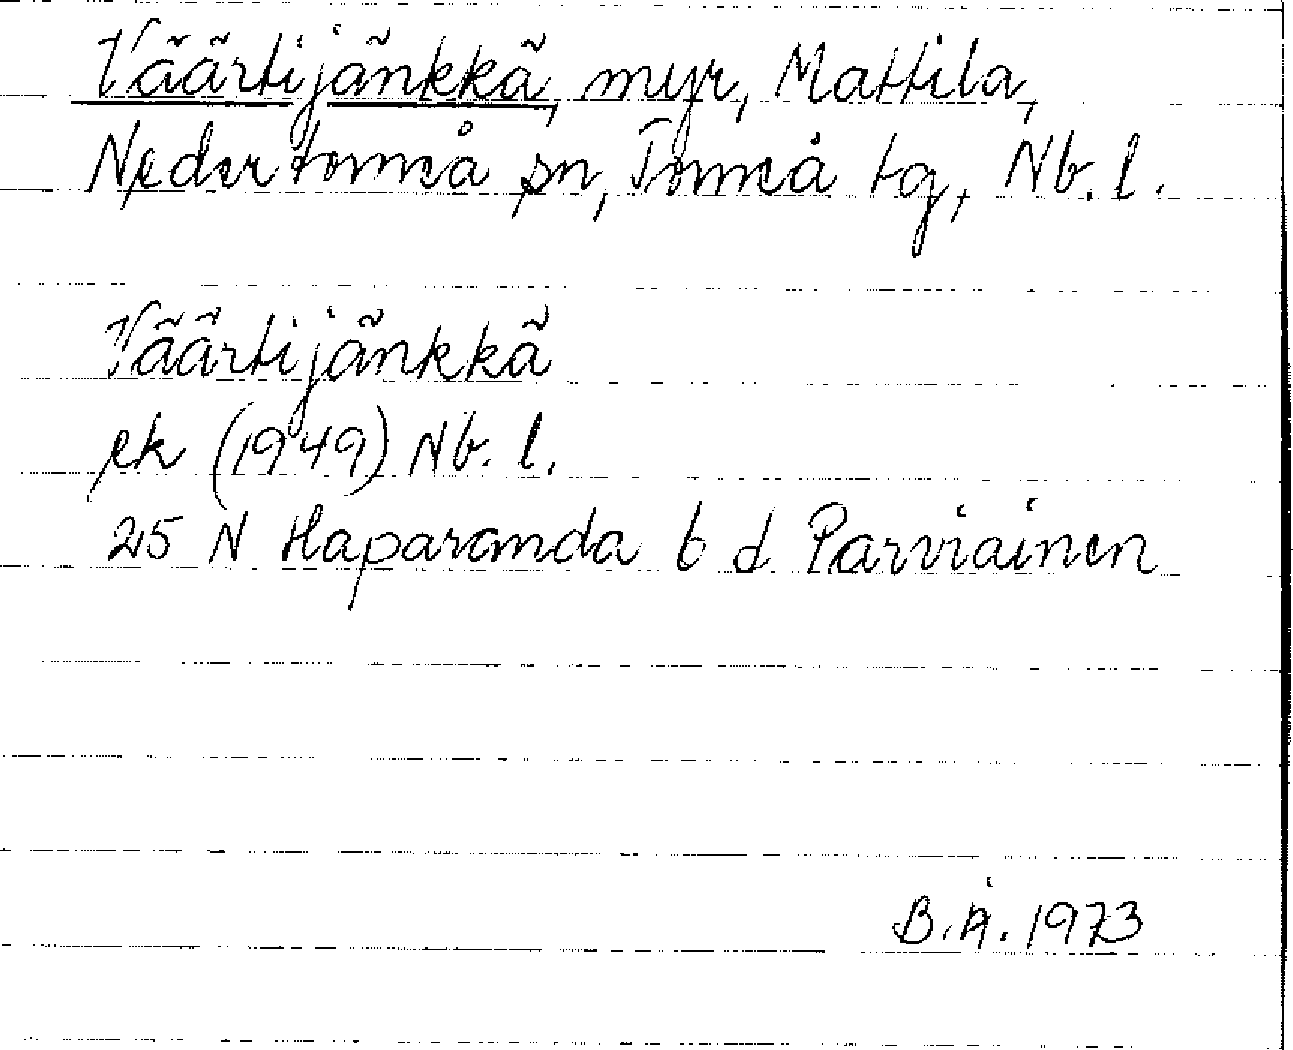 Väärtijänkkä, myr, Mattila,
Nedertorneå sn, Torneå tg, Nb. l.
Väärtijänkkä
ek (1949) Nb. l.
25 N Haparanda b d Parviainen
B.Å. 1973